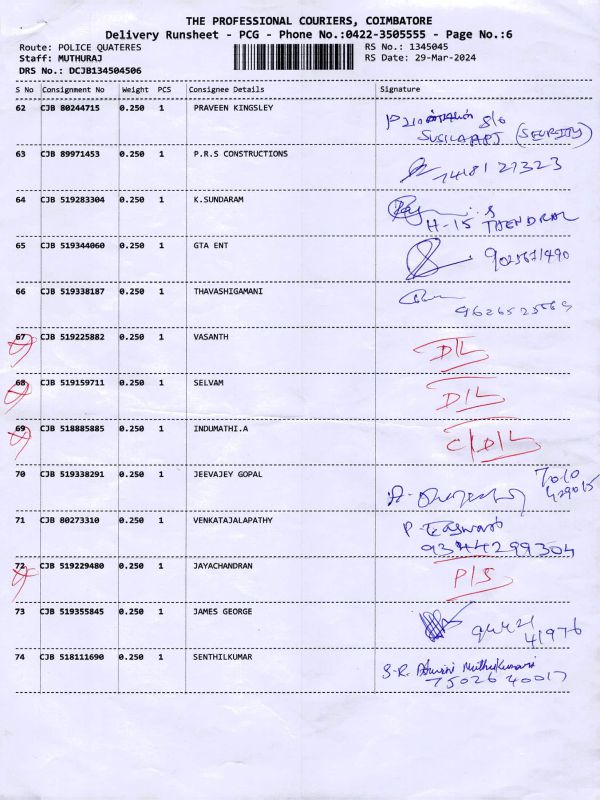 THE PROFESSIONAL COURIERS, COIMBATORE
Delivery Runsheet - PCG - Phone No.:0422-3505555 - Page No.:6
Route: POLICE QUATERES RS No.: 1345045
Staff: MUTHURAJ RS Date: 29-Mar-2024
DRS No.: DCJB134504506
S No Consignment No Weight PCS Consignee Details Signature
62 CJB 80244715 0.250 1 PRAVEEN KINGSLEY
S/o
(SECURITY)
63 CJB 89971453 0.250 1 P.R.S CONSTRUCTIONS
7418127323
64 CJB 519283304 0.250 1 K.SUNDARAM
H-15 THENDRAL
65 CJB 519344060 0.250 1 GTA ENT
9025671490
66 CJB 519338187 0.250 1 THAVASHIGAMANI
67 CJB 519225882 0.250 1 VASANTH D/L
68 CJB 519159711 0.250 1 SELVAM D/L
69 CJB 518885885 0.250 1 INDUMATHI.A C/D/L
70 CJB 519338291 0.250 1 JEEVAJEY GOPAL
7010
429015
71 CJB 80273310 0.250 1 VENKATAJALAPATHY P. Easwari
9344299304
72 CJB 519229480 0.250 1 JAYACHANDRAN P/S
73 CJB 519355845 0.250 1 JAMES GEORGE
94421
41976
74 CJB 518111690 0.250 1 SENTHILKUMAR S.R. Muthukumari
75026 40017